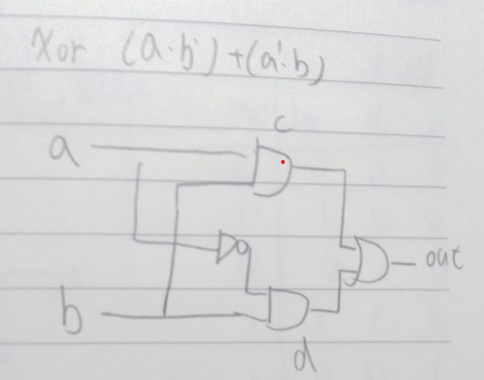 Xor (a·b')+(a'·b)
c
a
out
b
d